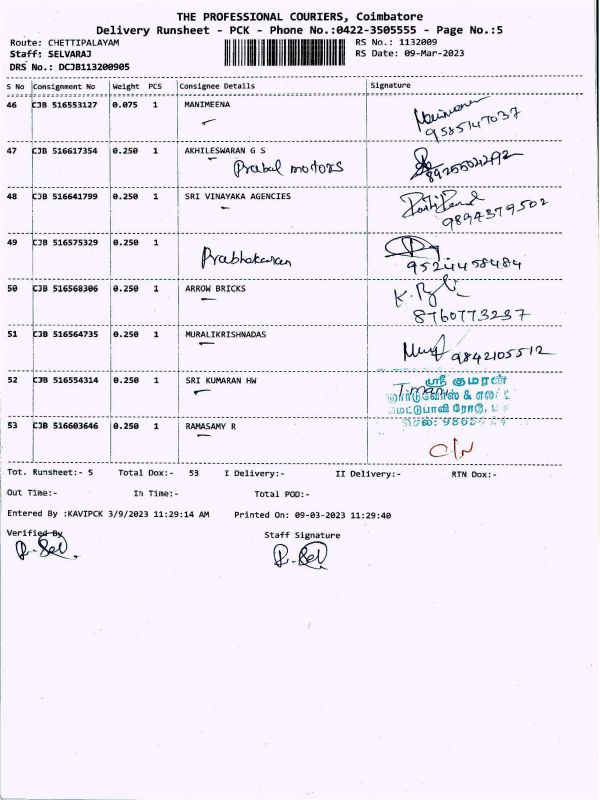 THE PROFESSIONAL COURIERS, Coimbatore
Delivery Runsheet - PCK - Phone No.:0422-3505555 - Page No.:5
Route: CHETTIPALAYAM RS No.: 1132009
Staff: SELVARAJ RS Date: 09-Mar-2023
DRS No.: DCJB113200905
S No Consignment No Weight PCS Consignee Details Signature
46 CJB 516553127 0.075 1 MANIMEENA
9585147037
47 CJB 516617354 0.250 1 AKHILESWARAN G S
Prabal motors
48 CJB 516641799 0.250 1 SRI VINAYAKA AGENCIES
9894379502
49 CJB 516575329 0.250 1
Prabhakaran
9524458484
50 CJB 516568306 0.250 1 ARROW BRICKS
8760773237
51 CJB 516564735 0.250 1 MURALIKRISHNADAS
9842105512
52 CJB 516554314 0.250 1 SRI KUMARAN HW
ஸ்ரீ குமரன்
53 CJB 516603646 0.250 1 RAMASAMY R
Tot. Runsheet:- 5 Total Dox:- 53 I Delivery:- II Delivery:- RTN Dox:-
Out Time:- In Time:- Total POD:-
Entered By :KAVIPCK 3/9/2023 11:29:14 AM Printed On: 09-03-2023 11:29:40
Verified By Staff Signature